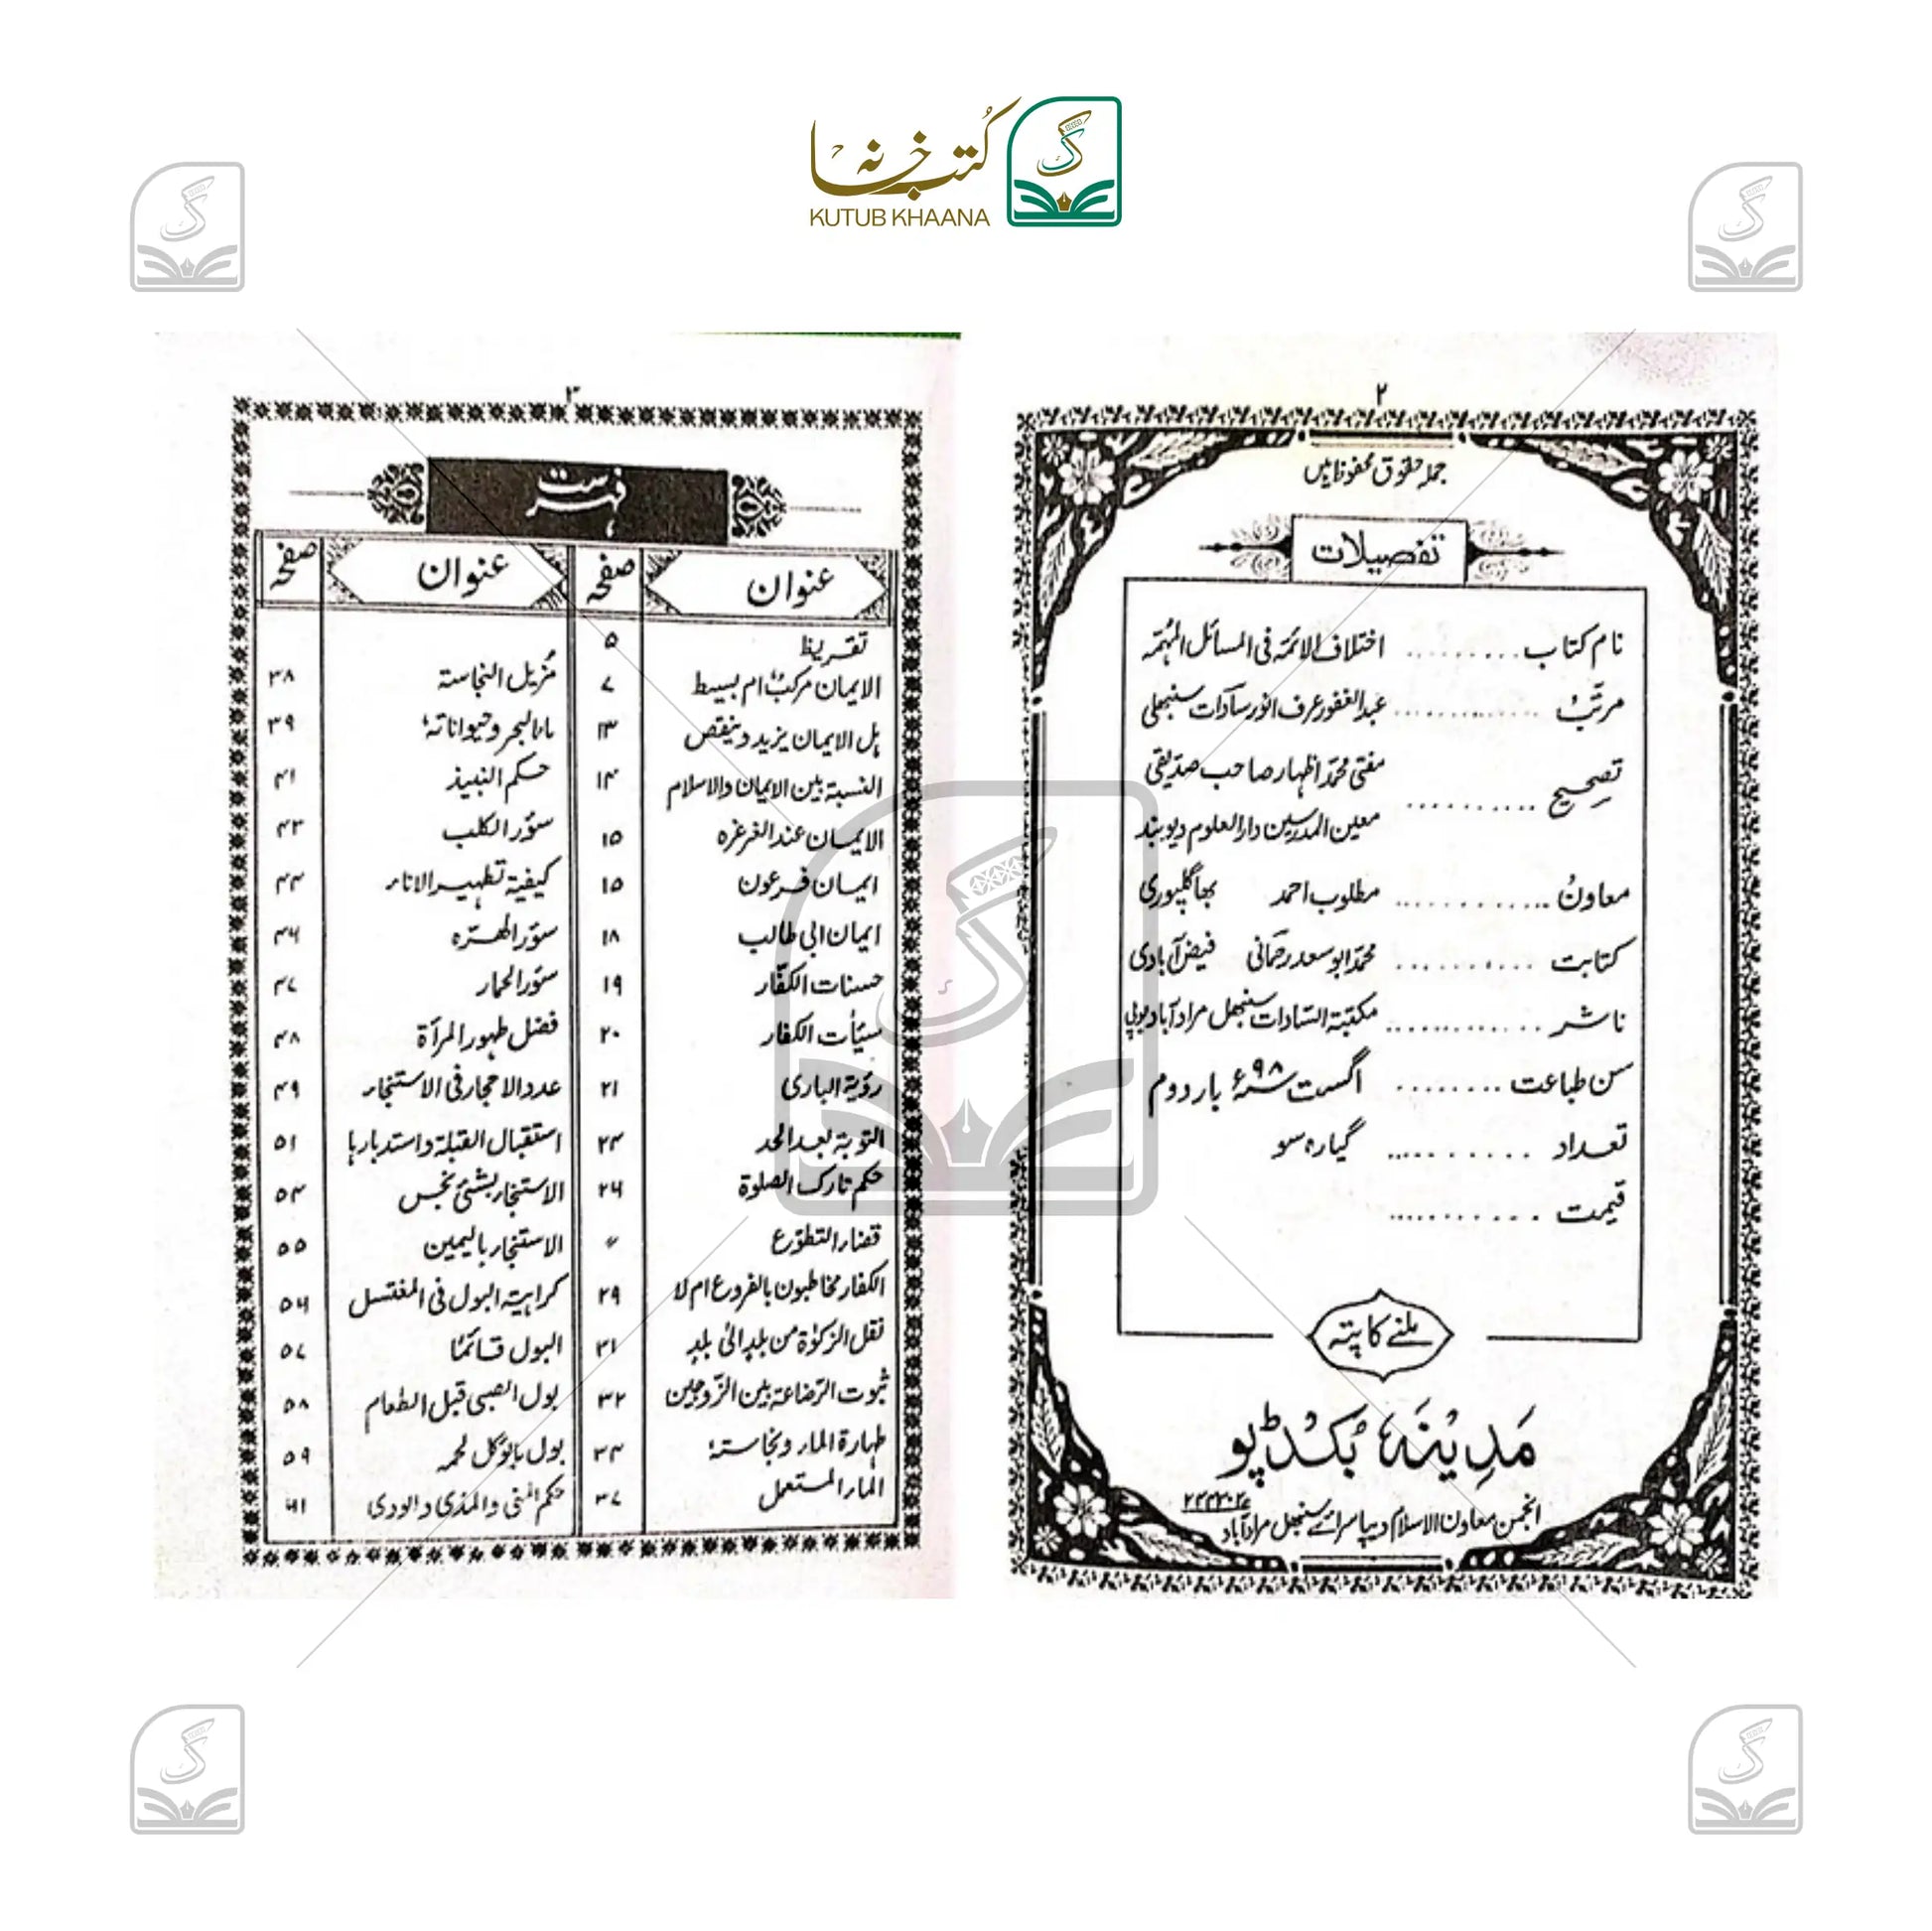 کُتب خانہ
KUTUB KHAANA
۲
جملہ حقوق محفوظ ہیں
تفصیلات
نام کتاب .......... اختلاف الائمہ فی المسائل المہمہ
مرتب .............. عبدالغفور عرف انور سادات سنبھلی
تصحیح .......... مفتی محمد اظہار صاحب صدیقی
معین المدرسین دارالعلوم دیوبند
معاون ............ مطلوب احمد بھاگلپوری
کتابت .......... محمد ابو سعد رحمانی فیض آبادی
ناشر .............. مکتبۃ السادات سنبھل مرادآباد یوپی
سن طباعت ........ اگست ۹۸ء بار دوم
تعداد ........... گیارہ سو
قیمت ............
ملنے کا پتہ
مدینہ بکڈپو
انجمن معاون الاسلام دیپا سرائے سنبھل مرادآباد
۳
فہرست
عنوان صفحہ عنوان صفحہ
تقریظ ۵
الایمان مرکب ام بسیط ۷ مزیل النجاستہ ۳۸
ہل الایمان یزید و ینقص ۱۳ ماء البحر و حیواناتہ ۳۹
النسبۃ بین الایمان والاسلام ۱۴ حکم النبیذ ۴۱
الایمان عند الغرغرہ ۱۵ سؤر الکلب ۴۳
ایمان فرعون ۱۵ کیفیۃ تطہیر الاناء ۴۴
ایمان ابی طالب ۱۸ سؤر الہرّہ ۴۶
حسنات الکفّار ۱۹ سؤر الحمار ۴۷
سیئات الکفار ۲۰ فضل طہور المرأۃ ۴۸
رؤیۃ الباری ۲۱ عدد الاحجار فی الاستنجاء ۴۹
التوبۃ بعد الحد ۲۴ استقبال القبلۃ و استدبارہا ۵۱
حکم تارک الصلوۃ ۲۶ الاستنجاء بشئ نجس ۵۴
قضاء التطوّع 〃 الاستنجاء بالیمین ۵۵
الکفار مخاطبون بالفروع ام لا ۲۹ کراہیۃ البول فی المغتسل ۵۶
نقل الزکوٰۃ من بلدٍ الیٰ بلدٍ ۳۱ البول قائمًا ۵۷
ثبوت الرّضاعۃ بین الزّوجین ۳۲ بول الصبی قبل الطعام ۵۸
طہارۃ الماء و نجاستہٗ ۳۴ بول مایؤکل لحمہ ۵۹
الماء المستعمل ۳۷ حکم المنی والمذی والودی ۶۱